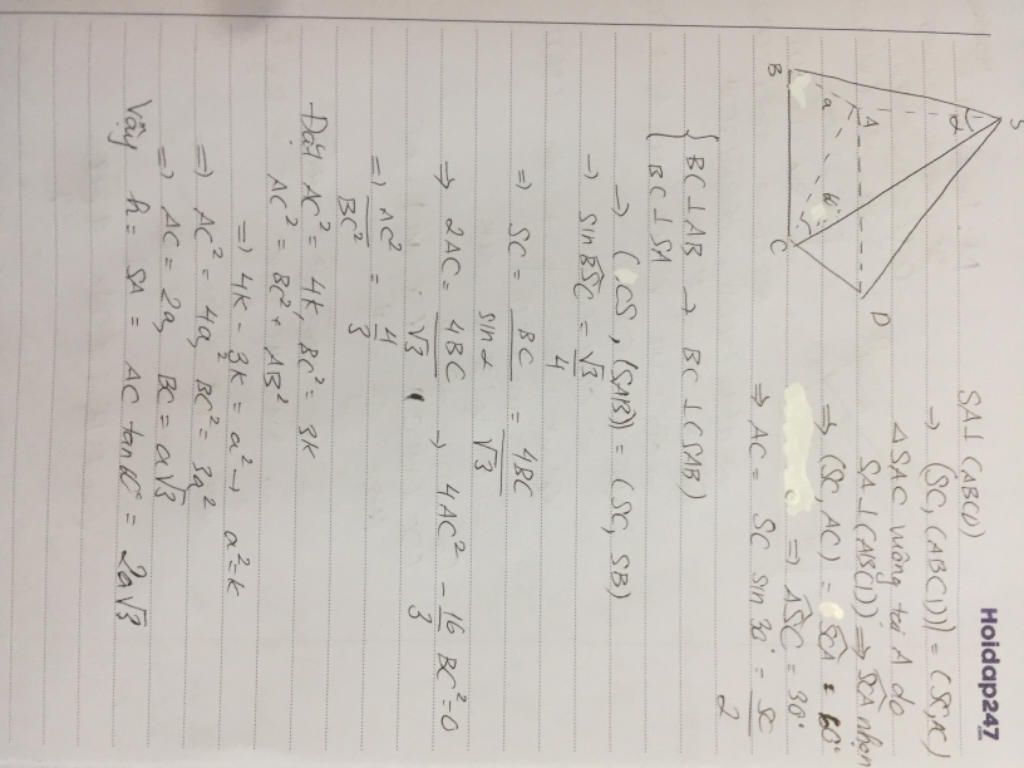 Hoidap247
S
α
B
a
A
60°
C
D
SA⊥(ABCD)
→ (SC, (ABCD)) = (SC, AC)
△SAC vuông tại A do
SA⊥(ABCD) ⇒ SCA nhọn
⇒ (SC, AC) = SCA = 60°
⇒ ASC = 30°
⇒ AC = SC sin 30° = SC/2
{ BC⊥AB → BC⊥(SAB)
BC⊥SA
→ (CS, (SAB)) = (SC, SB)
→ sin BSC = √3/4
⇒ SC = BC/sin α = 4BC/√3
⇒ 2AC = 4BC/√3 → 4AC² - 16/3 BC² = 0
⇒ AC²/BC² = 4/3
Đặt AC² = 4k, BC² = 3k
AC² = BC² + AB²
⇒ 4k - 3k = a² → a² = k
⇒ AC² = 4a², BC² = 3a²
⇒ AC = 2a, BC = a√3
Vậy h = SA = AC tan 60° = 2a√3